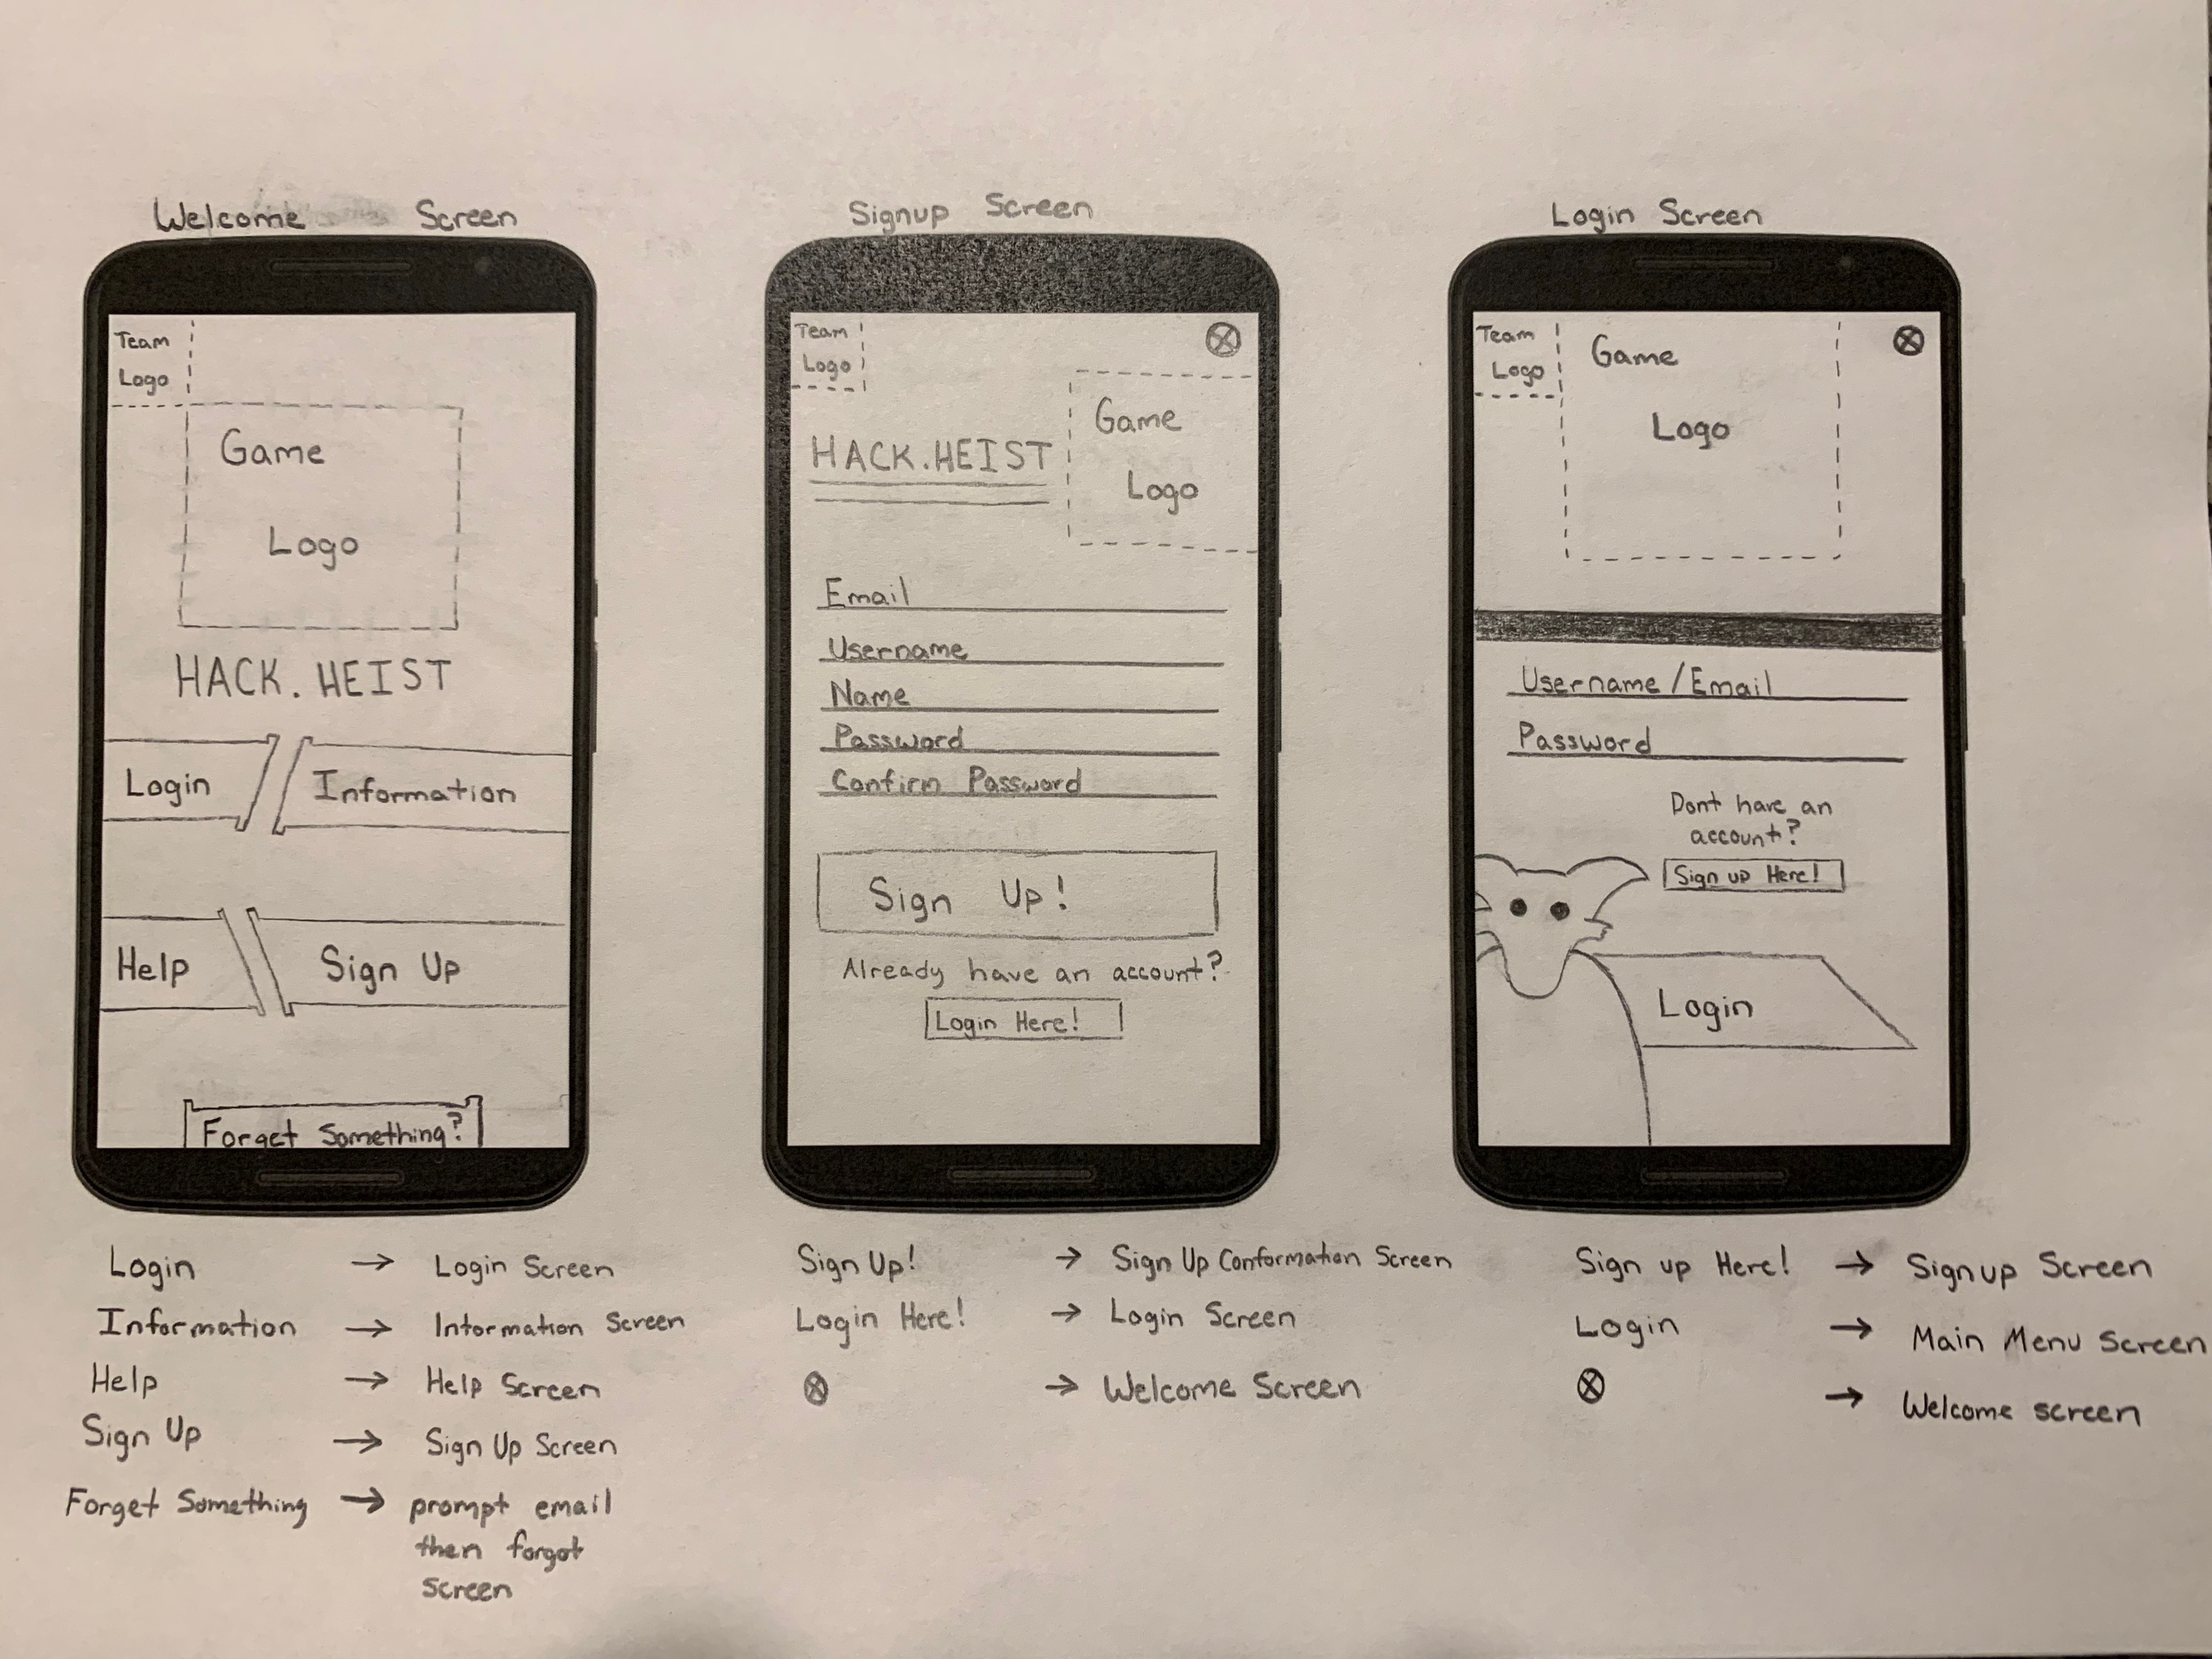 Welcome Screen
Team
Logo
Game
Logo
HACK.HEIST
Login Information
Help Sign Up
Forget Something?
Login → Login Screen
Information → Information Screen
Help → Help Screen
Sign Up → Sign Up Screen
Forget Something → prompt email
then forgot
screen
Signup Screen
Team
Logo
HACK.HEIST
Game
Logo
Email
Username
Name
Password
Confirm Password
Sign Up!
Already have an account?
Login Here!
Sign Up! → Sign Up Conformation Screen
Login Here! → Login Screen
ⓧ → Welcome Screen
Login Screen
Team
Logo
Game
Logo
ⓧ
Username/Email
Password
Dont have an
account?
Sign up Here!
Login
Sign up Here! → Signup Screen
Login → Main Menu Screen
ⓧ → Welcome screen